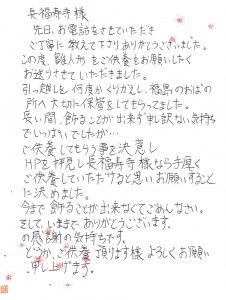 長福寿寺様
先日、お電話をさせていただき
ご丁寧に教えて下さりありがとうございました。
この度、雛人形をご供養をお願いしたく
お送りさせていただきました。
引っ越しを何度かくりかえし福島のおばの
所へ大切に保管をしてもらってました。
長い間、飾ることが出来ず申し訳ない気持ち
でいっぱいでしたが…
ご供養してもらう事を決意し
HPを拝見し長福寿寺様なら手厚く
ご供養していただけると思いお願いすること
に決めました。
今まで飾ることが出来なくてごめんなさい。
そして、いままでありがとうございます。
の感謝の気持ちです。
どうか、ご供養頂けます様よろしくお願い
申し上げます。